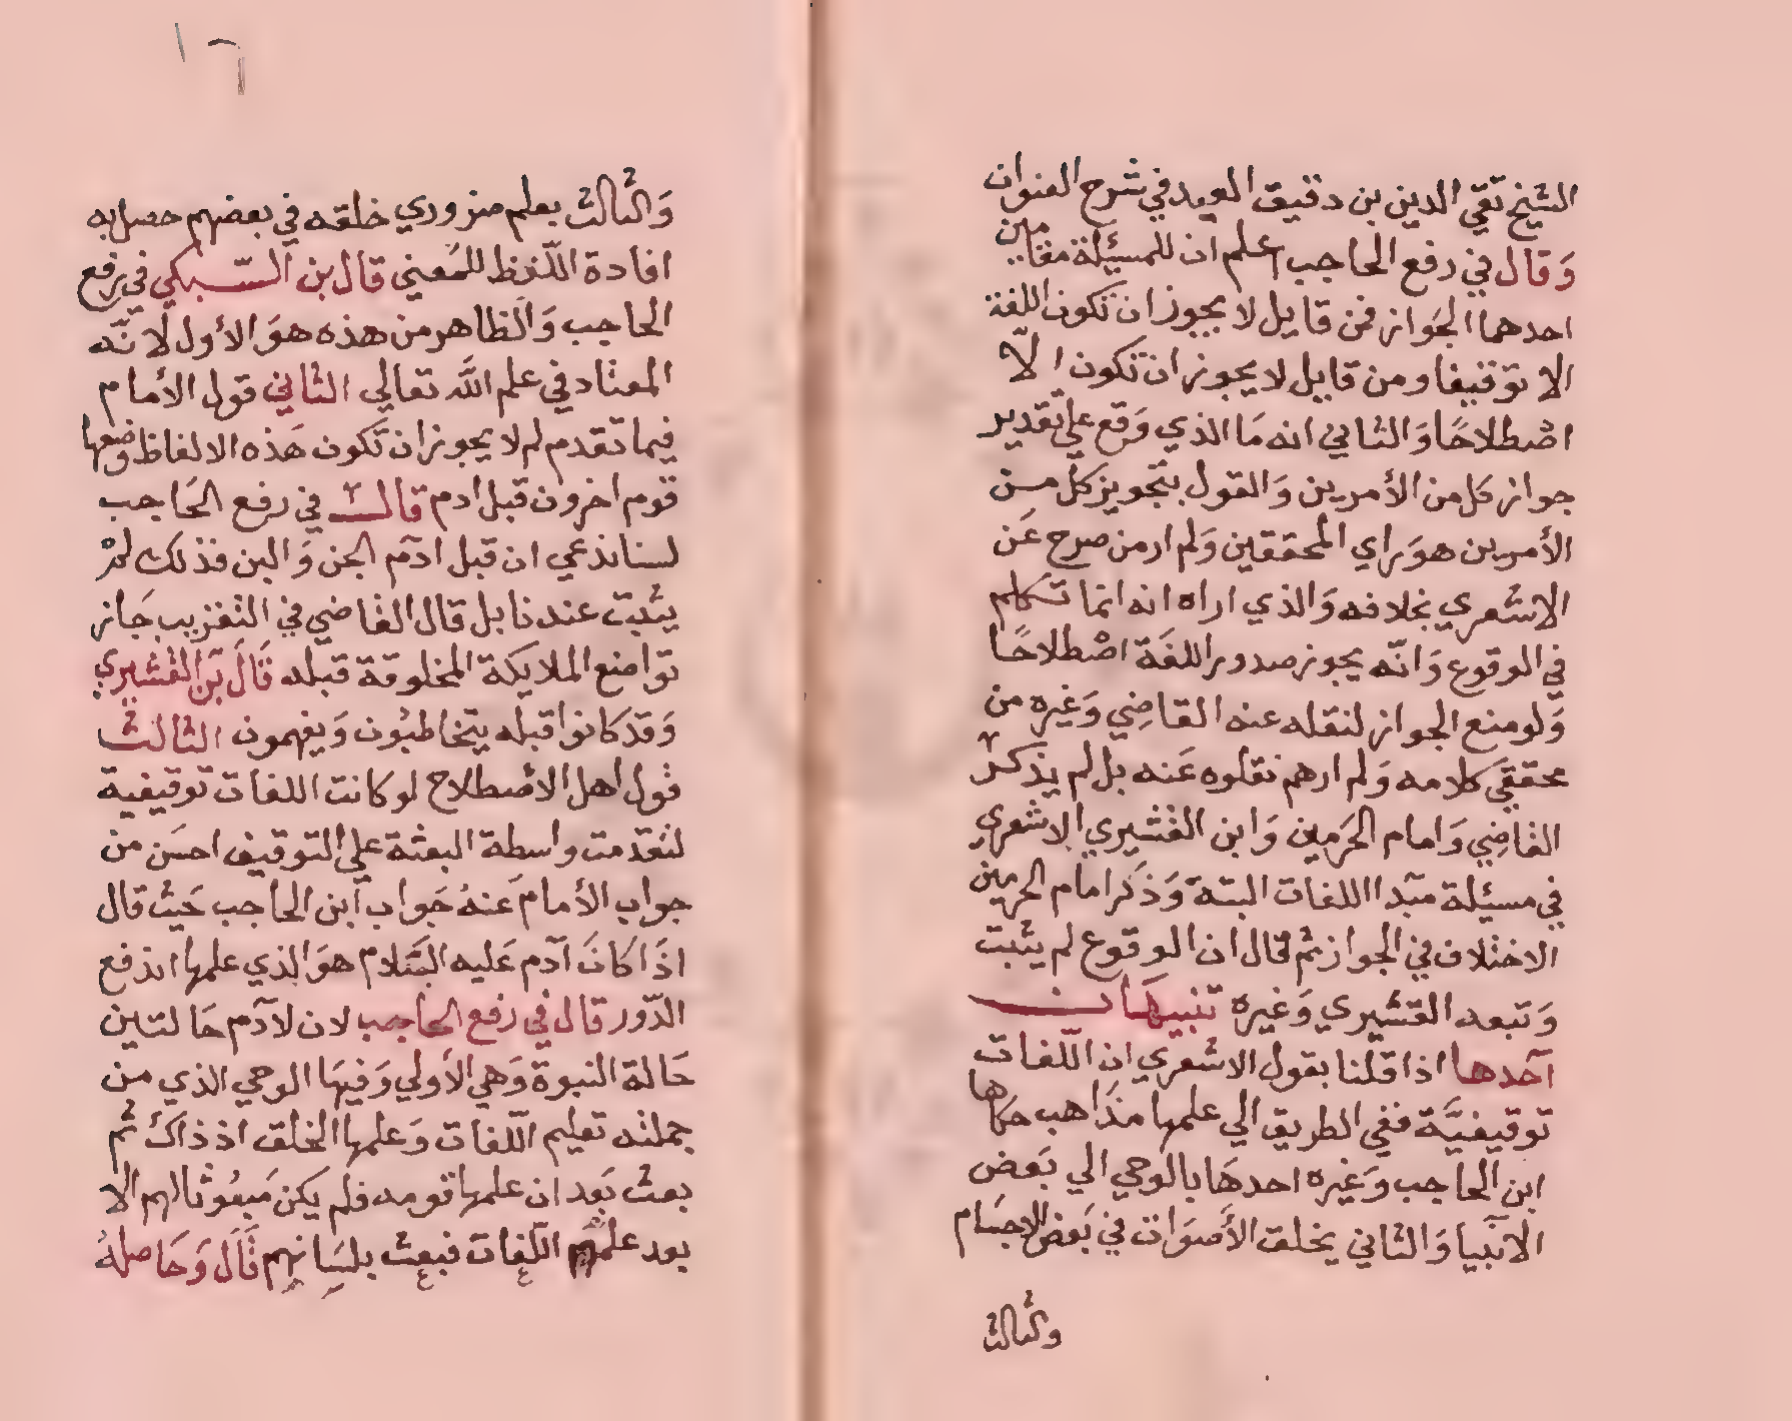 الشيخ تقي الدين بن دقيق العيد في شرح العنوان
وَقال في رفع الحاجب اعلم ان للمسئلة مقامين
احدهما الجواز فمن قايل لا يجوز ان تكون اللغة
الا توقيفا ومن قايل لا يجوز ان تكون الّا
اصْطلاحًا وَالثاني انه مَا الذي وَقع علي تقدير
جواز كل من الأمرين وَالقول بتجويز كل من
الأمرين هوَ راي المحققين وَلم ار من صرح عَن
الاشعري بخلافه وَالذي اراه انه انما تكلم
في الوقوع وَانّه يجوز صدور اللغَة اصْطلاحًا
وَلو منع الجواز لنقله عنه القاضِي وَغيره من
محققي كلامه وَلم ارهم نقلوه عَنه بل لم يذكر
القاضِي وَامام الحَرمين وَابن القشيري الاشعري
في مسئلة مبدا اللغات البتة وَذكَر امام الحرمين
الاختلاف في الجواز ثم قال ان الوقوع لم يثبت
وَتبعه القشيري وَغيره تنبيهَات
آحَدها اذا قلنا بقول الاشعري ان اللّغات
توقيفيَّة ففي الطريق الي علمها مذَاهب حكاها
ابن الحاجب وَغيره احدهَا بالوحي الي بَعض
الانبيا وَالثاني يخلق الأصوَات في بَعض الاجسَام
والثالث
١٦
وَالثالث بعلم ضروري خلقه في بعضهم حصل به
افادة اللّفظ للمَعني قال بن السّبكي في رفع
الحاجب وَالظاهر من هذه هوَ الأول لانّه
المعتاد في علم الله تعالي الثاني قول الأمام
فيما تقدم لم لا يجوز ان تكون هَذه الالفاظ وضعها
قوم اخرون قبل ادم قالَ في رفع الحَاجب
لسنا ندعي ان قبل ادآم الجن وَالبن فذلك لمْ
يثبت عندنا بل قال القاضي في التقريب جَاز
تواضع الملايكة المخلوقة قبله قَالَ بَن القشيري
وَقد كَانوا قبله يتخاطبُون وَيفهمون الثالث
قول اهل الاصْطلاح لو كانت اللغات توقيفية
لتقدمت واسطة البعثة علي التوقيف احسَن من
جواب الأمام عَنهُ جَواب ابن الحاجب حَيث قال
اذَا كَانَ آدم عَليه السَّلام هوَ الذي علمها اندفع
الدّور قال في رفع الحاجب لان لآدم حَالتين
حَالة النبوة وَهي الأولي وَفيهَا الوحي الذي من
جملته تعليم اللّغات وَعلمها الخلق اذ ذاك ثم
بعث بَعد ان علمها قومه فلم يكن مَبعُوثا لهم الا
بعد علمهم اللّغات فبعث بلسَانهم قَالَ وَحَاصلهُ